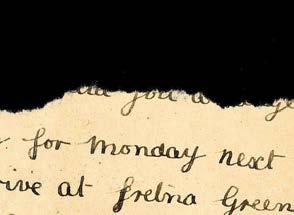 you a
for monday next
rive at Gretna Green